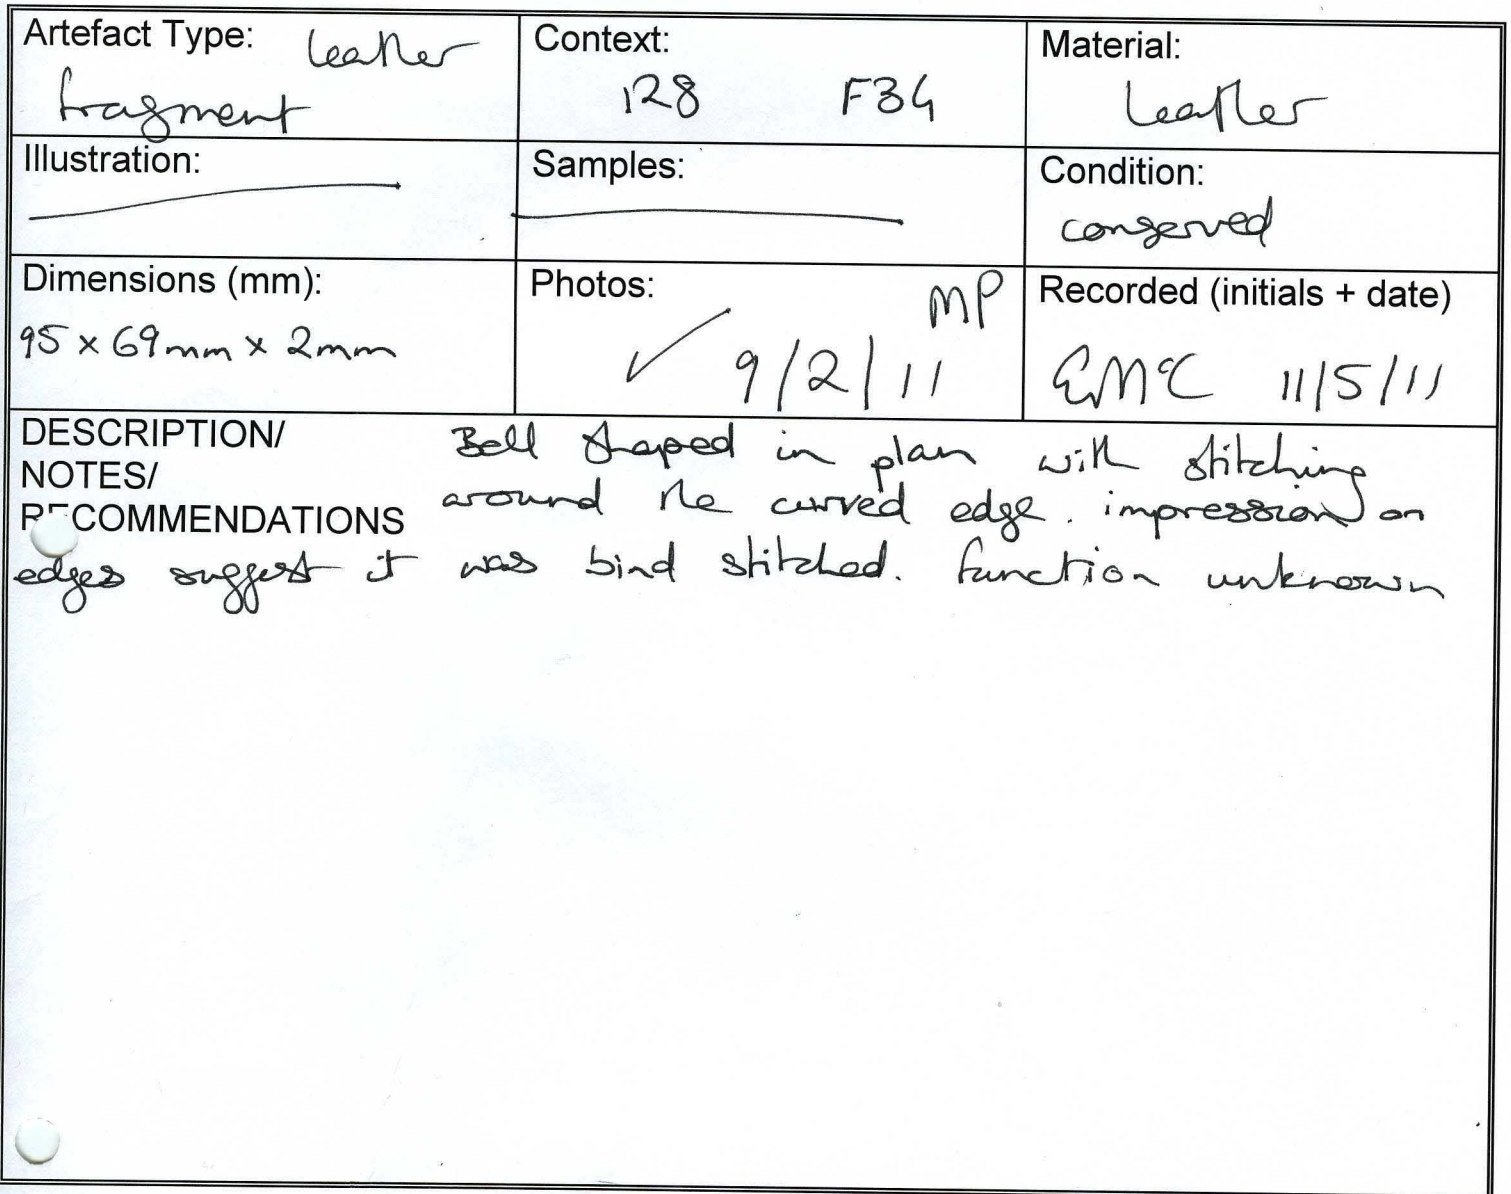 Artefact Type: leather
fragment
Context:
128 F34
Material:
leather
Illustration:
Samples:
Condition:
conserved
Dimensions (mm):
95 x 69mm x 2mm
Photos: MP
✓ 9/2/11
Recorded (initials + date)
EMcC 11/5/11
DESCRIPTION/
NOTES/
RECOMMENDATIONS
Bell shaped in plan with stitching
around the curved edge. impression on
edges suggest it was bind stitched. function unknown